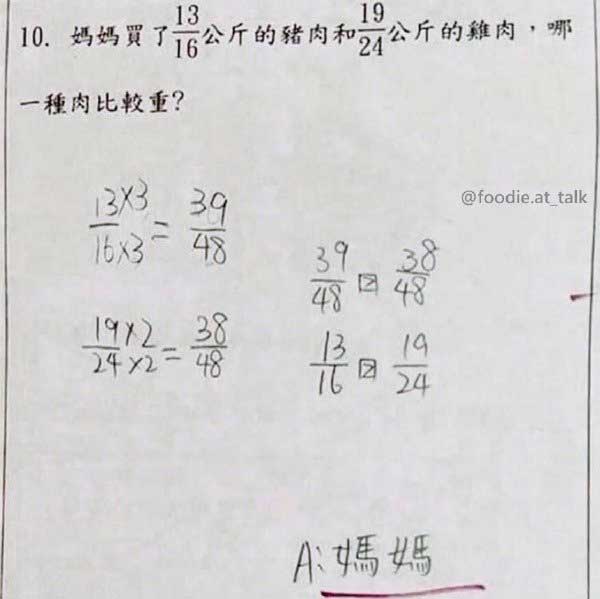 10. 媽媽買了13/16公斤的豬肉和19/24公斤的雞肉，哪
一種肉比較重?
@foodie.at_talk
13×3/16×3 = 39/48
19×2/24×2 = 38/48
39/48 > 38/48
13/16 > 19/24
A:媽媽